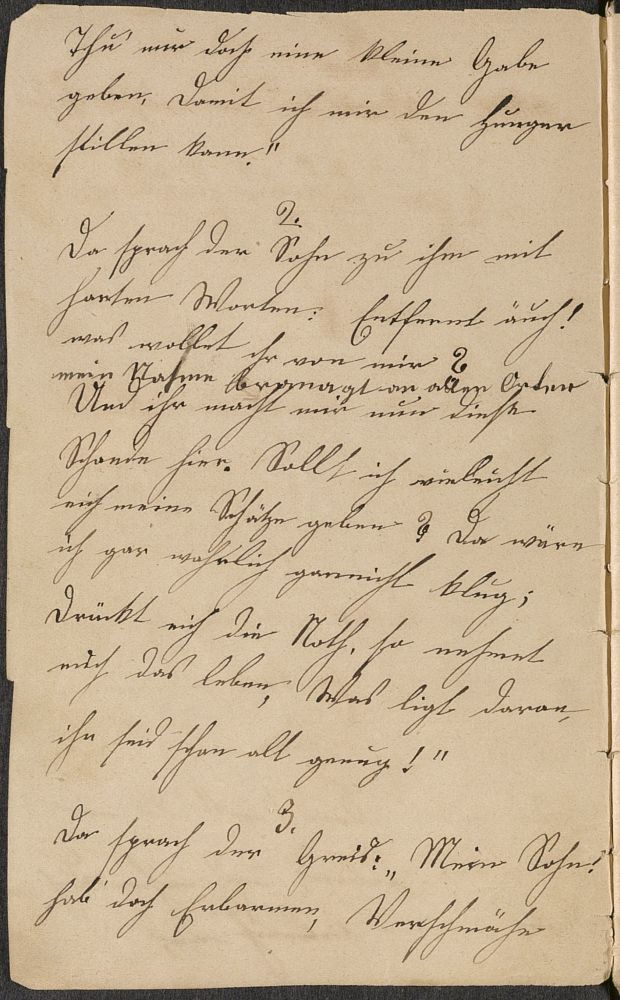 Thu' mir doch eine kleine Gabe
geben, damit ich mir den Hunger
stillen kann."
2.
Da sprach der Sohn zu ihm mit
harten Worten: Entfernt äuch!
was wollet ihr von mir?
mein Nahme branagt an allen Orten
Und ihr macht mir nun diese
Schande hier. Sollt ich vieleicht
eich meine Schätze geben? Da wäre
ich gar wahrlich garnicht klug;
Drückt eich die Noth, so nehmet
euch das leben, Was ligt daran,
ihr seid schon alt genug!"
3.
Da sprach der Greis: "Mein Sohn!
hab' doch Erbarmen, Verschmähe